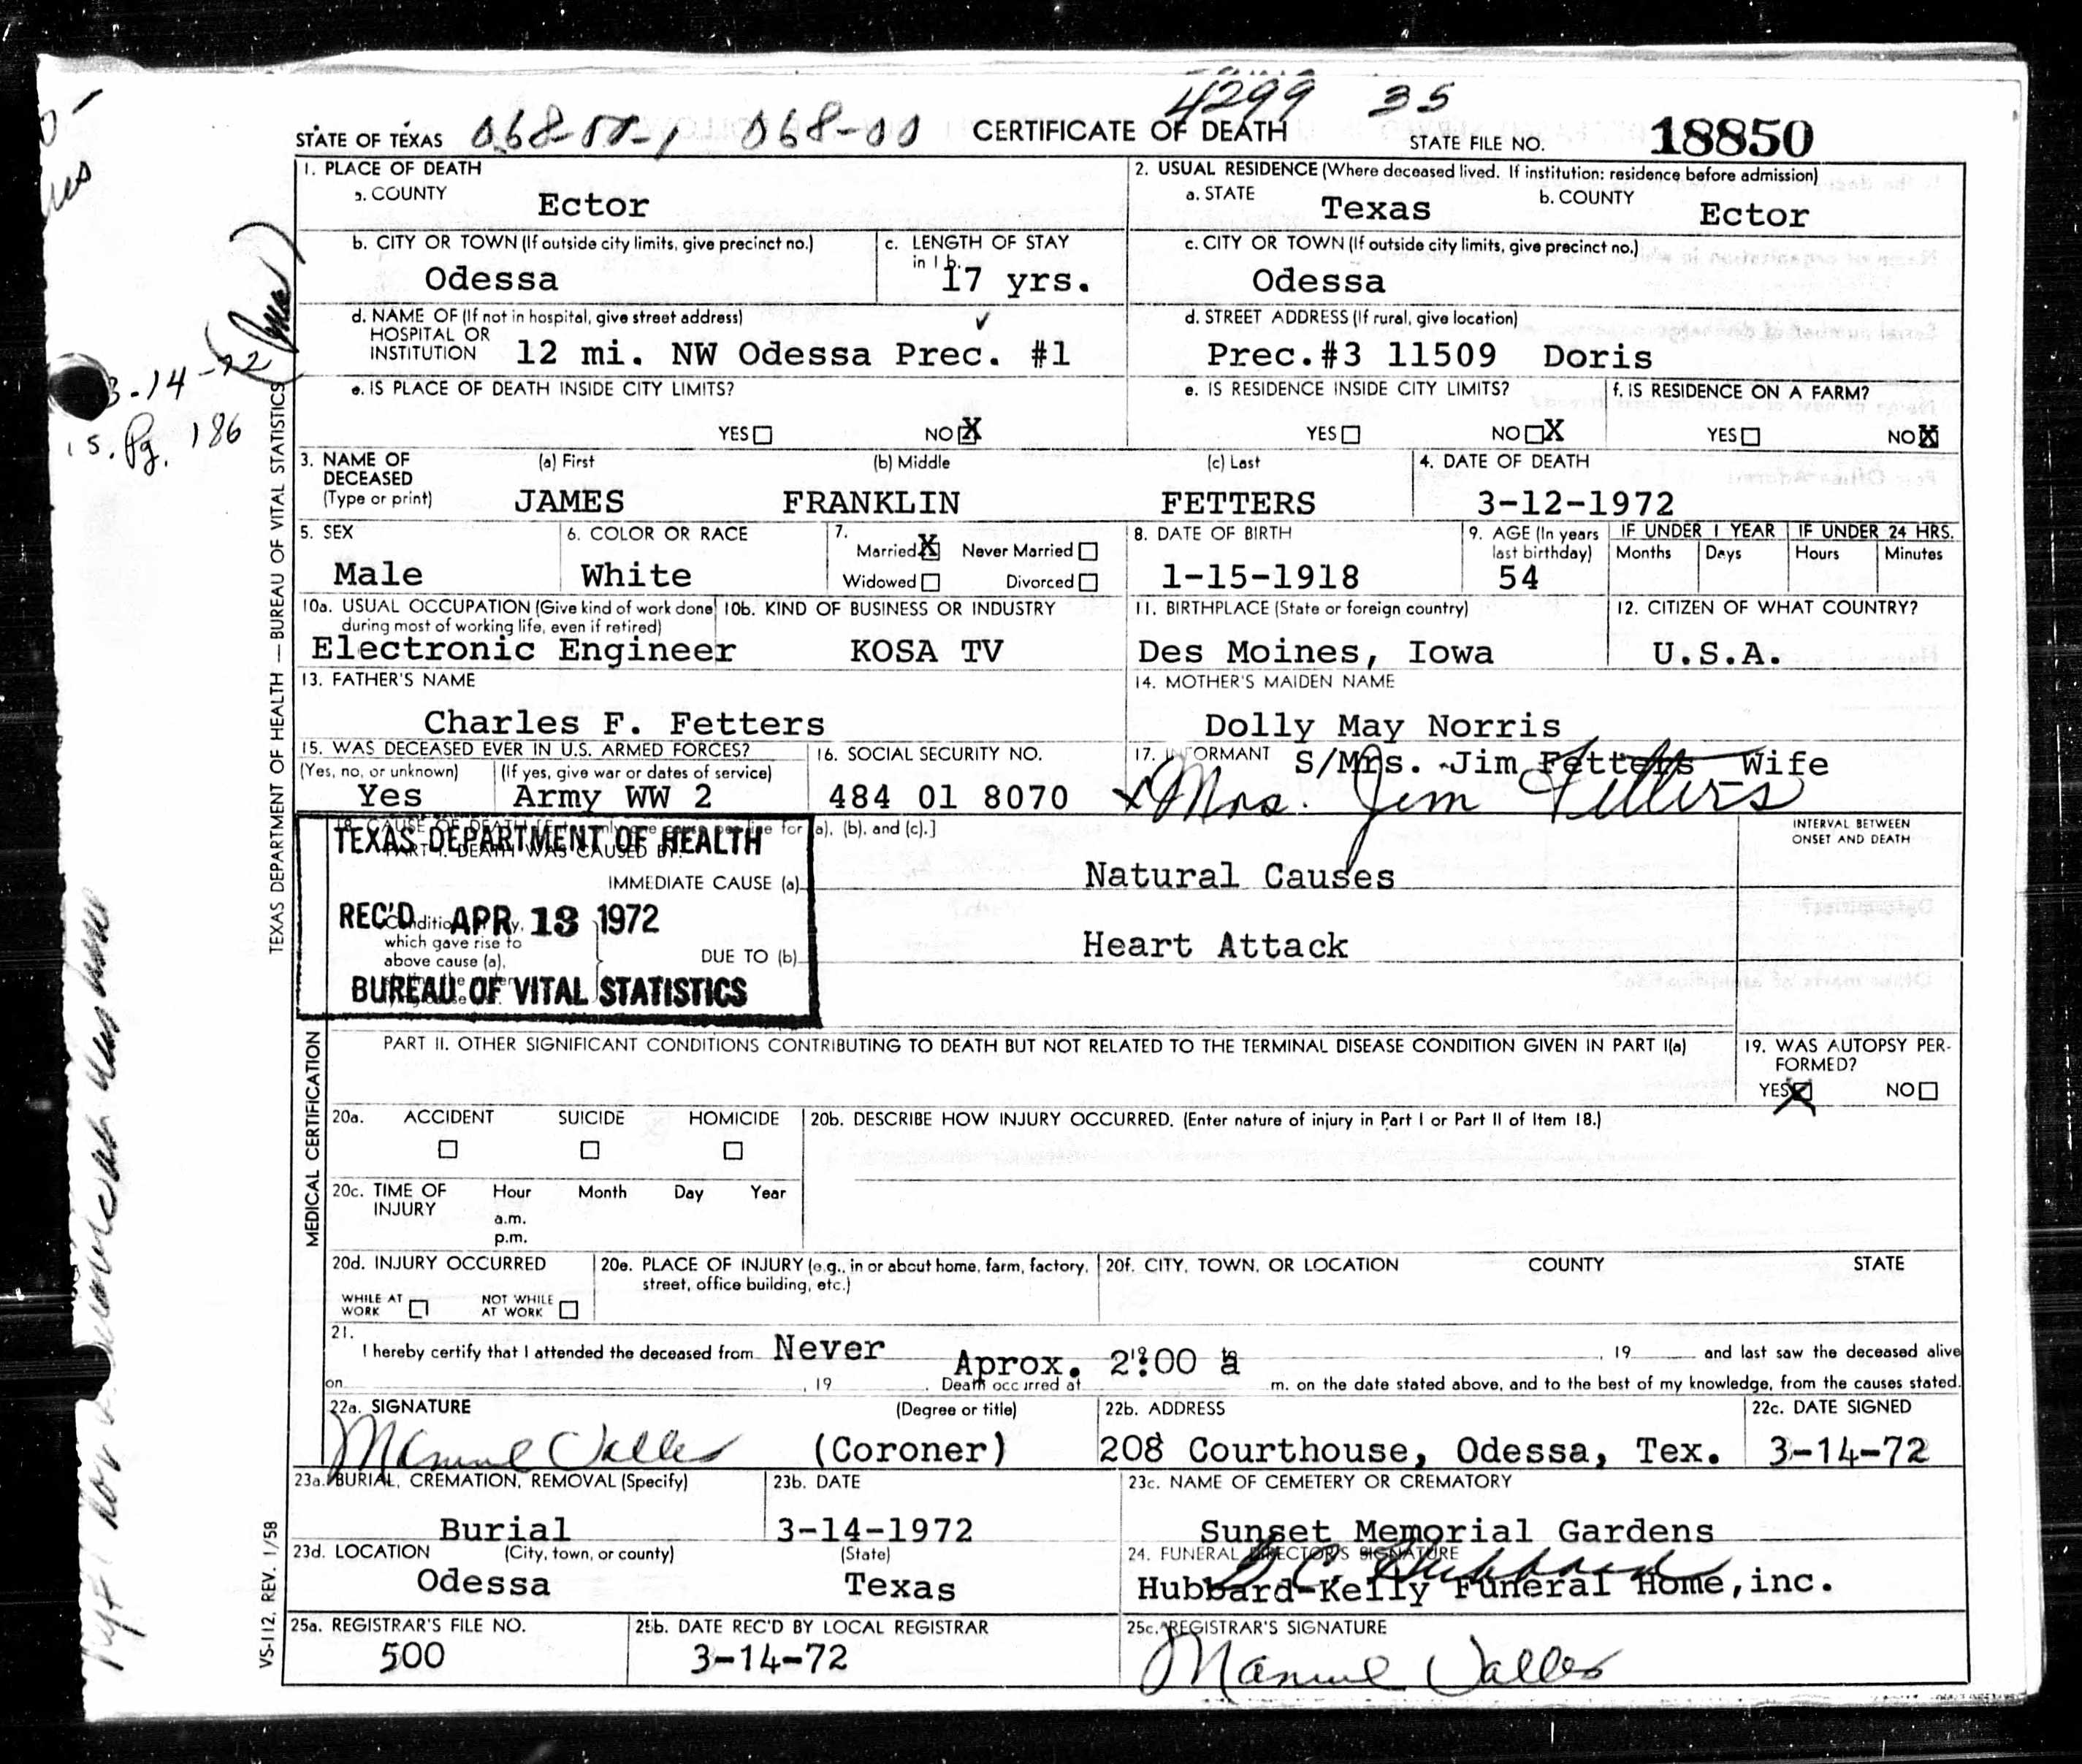 4299 35
STATE OF TEXAS 068-00-1 068-00 CERTIFICATE OF DEATH STATE FILE NO. 18850
1. PLACE OF DEATH
a. COUNTY Ector
2. USUAL RESIDENCE (Where deceased lived. If institution: residence before admission)
a. STATE Texas b. COUNTY Ector
b. CITY OR TOWN (If outside city limits, give precinct no.) Odessa
c. LENGTH OF STAY in 1 b. 17 yrs.
c. CITY OR TOWN (If outside city limits, give precinct no.) Odessa
d. NAME OF (If not in hospital, give street address)
HOSPITAL OR
INSTITUTION 12 mi. NW Odessa Prec. #1
d. STREET ADDRESS (If rural, give location)
Prec.#3 11509 Doris
e. IS PLACE OF DEATH INSIDE CITY LIMITS?
YES NO X
e. IS RESIDENCE INSIDE CITY LIMITS?
YES NO X
f. IS RESIDENCE ON A FARM?
YES NO X
3. NAME OF DECEASED (Type or print)
(a) First (b) Middle (c) Last
JAMES FRANKLIN FETTERS
4. DATE OF DEATH
3-12-1972
5. SEX
Male
6. COLOR OR RACE
White
7.
Married X Never Married
Widowed Divorced
8. DATE OF BIRTH
1-15-1918
9. AGE (In years last birthday)
54
IF UNDER 1 YEAR
Months Days
IF UNDER 24 HRS.
Hours Minutes
10a. USUAL OCCUPATION (Give kind of work done during most of working life, even if retired)
Electronic Engineer
10b. KIND OF BUSINESS OR INDUSTRY
KOSA TV
11. BIRTHPLACE (State or foreign country)
Des Moines, Iowa
12. CITIZEN OF WHAT COUNTRY?
U.S.A.
13. FATHER'S NAME
Charles F. Fetters
14. MOTHER'S MAIDEN NAME
Dolly May Norris
15. WAS DECEASED EVER IN U.S. ARMED FORCES?
(Yes, no, or unknown) (If yes, give war or dates of service)
Yes Army WW 2
16. SOCIAL SECURITY NO.
484 01 8070
17. INFORMANT S/Mrs. Jim Fetters Wife
x Mrs. Jim Fetters
18. CAUSE OF DEATH [Enter only one cause per line for (a), (b), and (c).]
PART I. DEATH WAS CAUSED BY:
TEXAS DEPARTMENT OF HEALTH
REC'D APR 13 1972
BUREAU OF VITAL STATISTICS
IMMEDIATE CAUSE (a) Natural Causes
which gave rise to
above cause (a),
DUE TO (b) Heart Attack
INTERVAL BETWEEN
ONSET AND DEATH
PART II. OTHER SIGNIFICANT CONDITIONS CONTRIBUTING TO DEATH BUT NOT RELATED TO THE TERMINAL DISEASE CONDITION GIVEN IN PART I(a)
19. WAS AUTOPSY PER-
FORMED?
YES X NO
20a. ACCIDENT SUICIDE HOMICIDE
20b. DESCRIBE HOW INJURY OCCURRED. (Enter nature of injury in Part I or Part II of Item 18.)
20c. TIME OF INJURY Hour Month Day Year
a.m.
p.m.
20d. INJURY OCCURRED
WHILE AT WORK NOT WHILE AT WORK
20e. PLACE OF INJURY (e.g., in or about home, farm, factory, street, office building, etc.)
20f. CITY, TOWN, OR LOCATION COUNTY STATE
21.
I hereby certify that I attended the deceased from Never , 19 and last saw the deceased alive
on , 19 . Death occurred at Aprox. 2:00 a m. on the date stated above, and to the best of my knowledge, from the causes stated.
22a. SIGNATURE (Degree or title)
Manuel Valles (Coroner)
22b. ADDRESS
208 Courthouse, Odessa, Tex.
22c. DATE SIGNED
3-14-72
23a. BURIAL, CREMATION, REMOVAL (Specify)
Burial
23b. DATE
3-14-1972
23c. NAME OF CEMETERY OR CREMATORY
Sunset Memorial Gardens
23d. LOCATION (City, town, or county) (State)
Odessa Texas
24. FUNERAL DIRECTOR'S SIGNATURE
Hubbard-Kelly Funeral Home, inc.
25a. REGISTRAR'S FILE NO.
500
25b. DATE REC'D BY LOCAL REGISTRAR
3-14-72
25c. REGISTRAR'S SIGNATURE
Manuel Valles
TEXAS DEPARTMENT OF HEALTH — BUREAU OF VITAL STATISTICS
MEDICAL CERTIFICATION
VS-112, REV. 1/58
3-14-72
Pg. 186